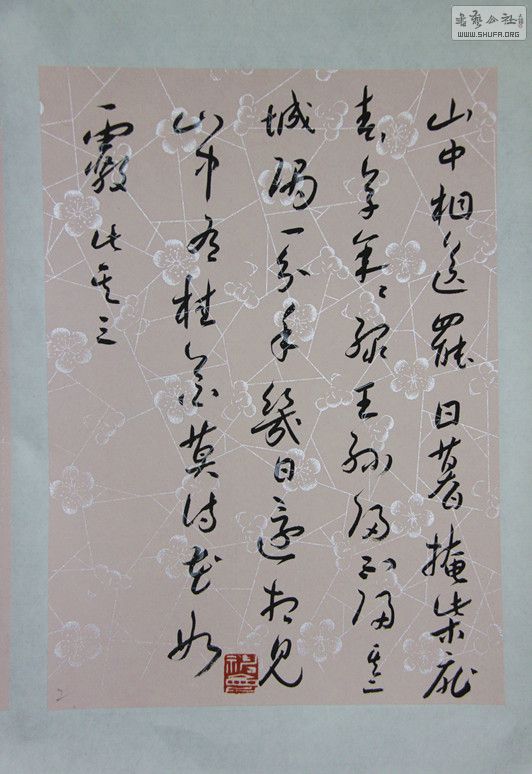 書藝公社
WWW.SHUFA.ORG
山中相送罷日暮掩柴扉
春草年々綠王孫歸不歸其二
城隅一分手幾日還相見
山中有桂花莫待花如
霰此其三